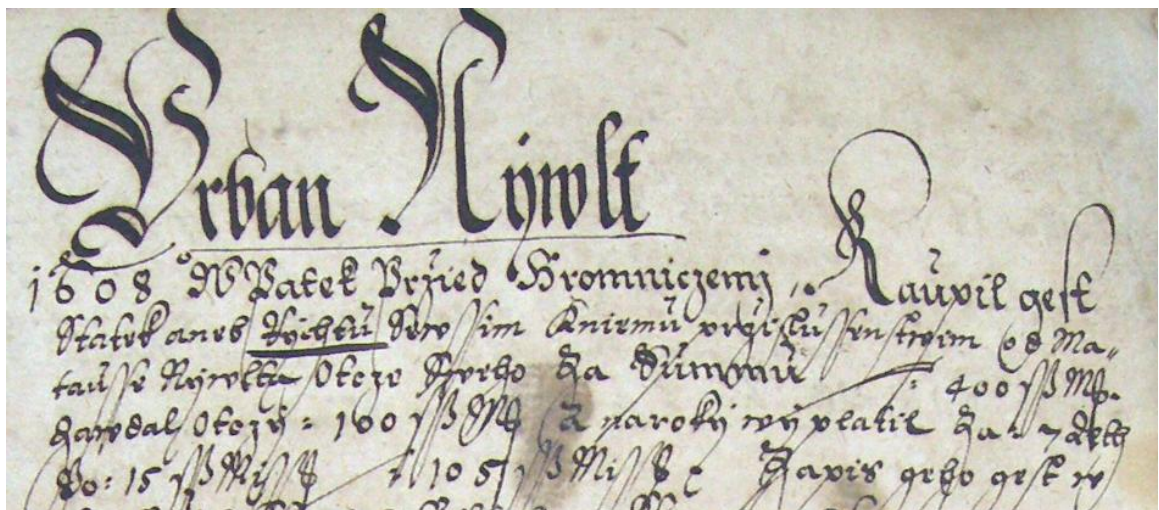 Vrban Nywlt
1608 W Patek Przied Hromniczemi, Kaupil gest
Statek aneb Rychtu Sewssim Kniemu przyslussenstwim od Ma„
tausse Nywlta Otcze Sweho Za Summu : 400 ßß Mß.
Zawdal Otczy : 100 ßß Mß A naroky wyplatil Za : 7 Leth
Po : 15 ßß Missß : 105 ßß Missß Zapis geho gest w